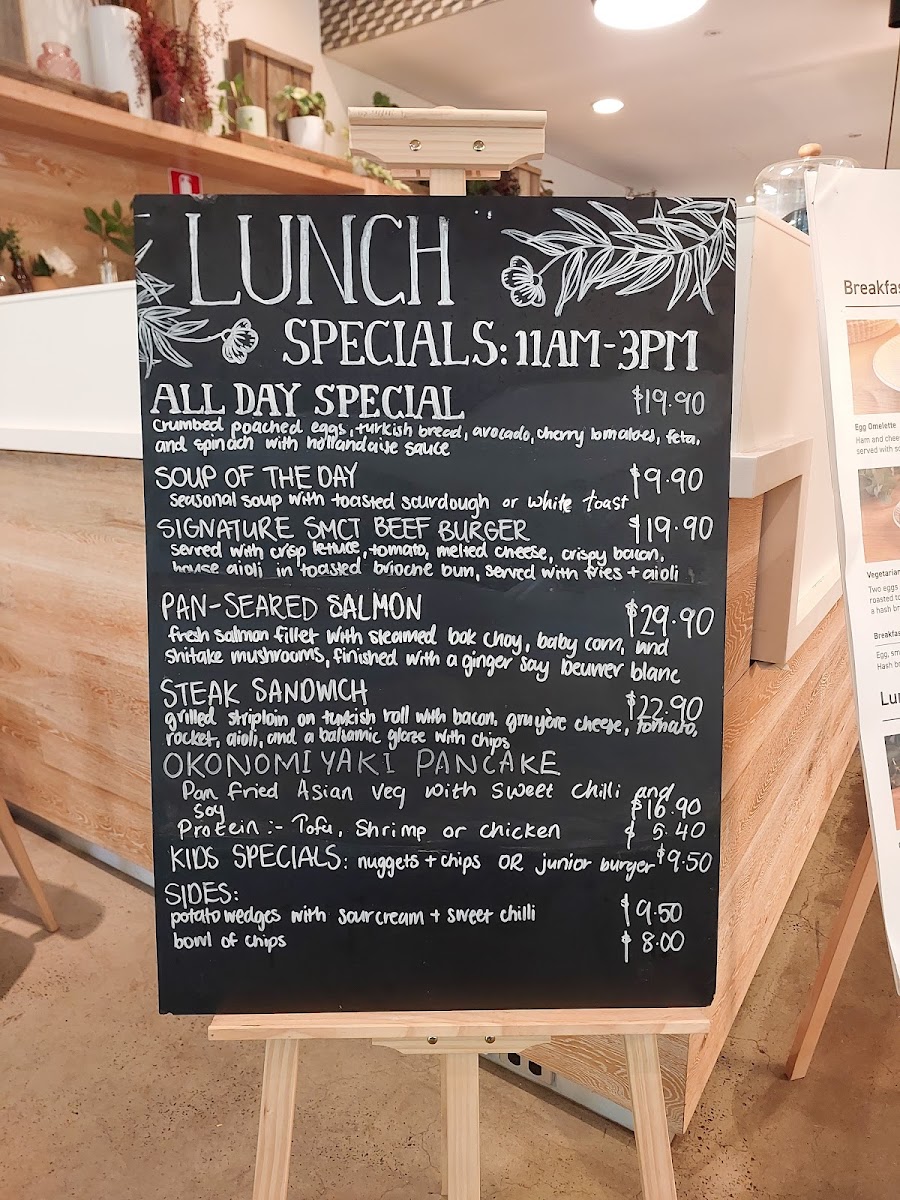 LUNCH
SPECIALS: 11AM-3PM
ALL DAY SPECIAL $19.90
crumbed poached eggs, turkish bread, avocado, cherry tomatoes, feta,
and spinach with hollandaise sauce
SOUP OF THE DAY $9.90
seasonal soup with toasted sourdough or white toast
SIGNATURE SMCT BEEF BURGER $19.90
served with crisp lettuce, tomato, melted cheese, crispy bacon,
house aioli in toasted brioche bun, served with fries + aioli
PAN-SEARED SALMON $29.90
fresh salmon fillet with steamed bok choy, baby corn, and
shitake mushrooms, finished with a ginger soy beurre blanc
STEAK SANDWICH $22.90
grilled striploin on turkish roll with bacon, gruyère cheese, tomato,
rocket, aioli, and a balsamic glaze with chips
OKONOMIYAKI PANCAKE
Pan fried Asian veg with sweet chilli and
soy $16.90
Protein :- Tofu, Shrimp or chicken $5.40
KIDS SPECIALS: nuggets + chips OR junior burger $9.50
SIDES:
potato wedges with sour cream + sweet chilli $9.50
bowl of chips $8.00
Breakfas
Egg Omelette
Ham and chee
served with so
Vegetarian
Two eggs
roasted to
a hash br
Breakfas
Egg, sm
Hash bo
Lu